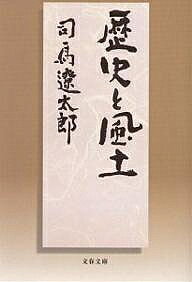 歴史と風土
司馬遼太郎
文春文庫